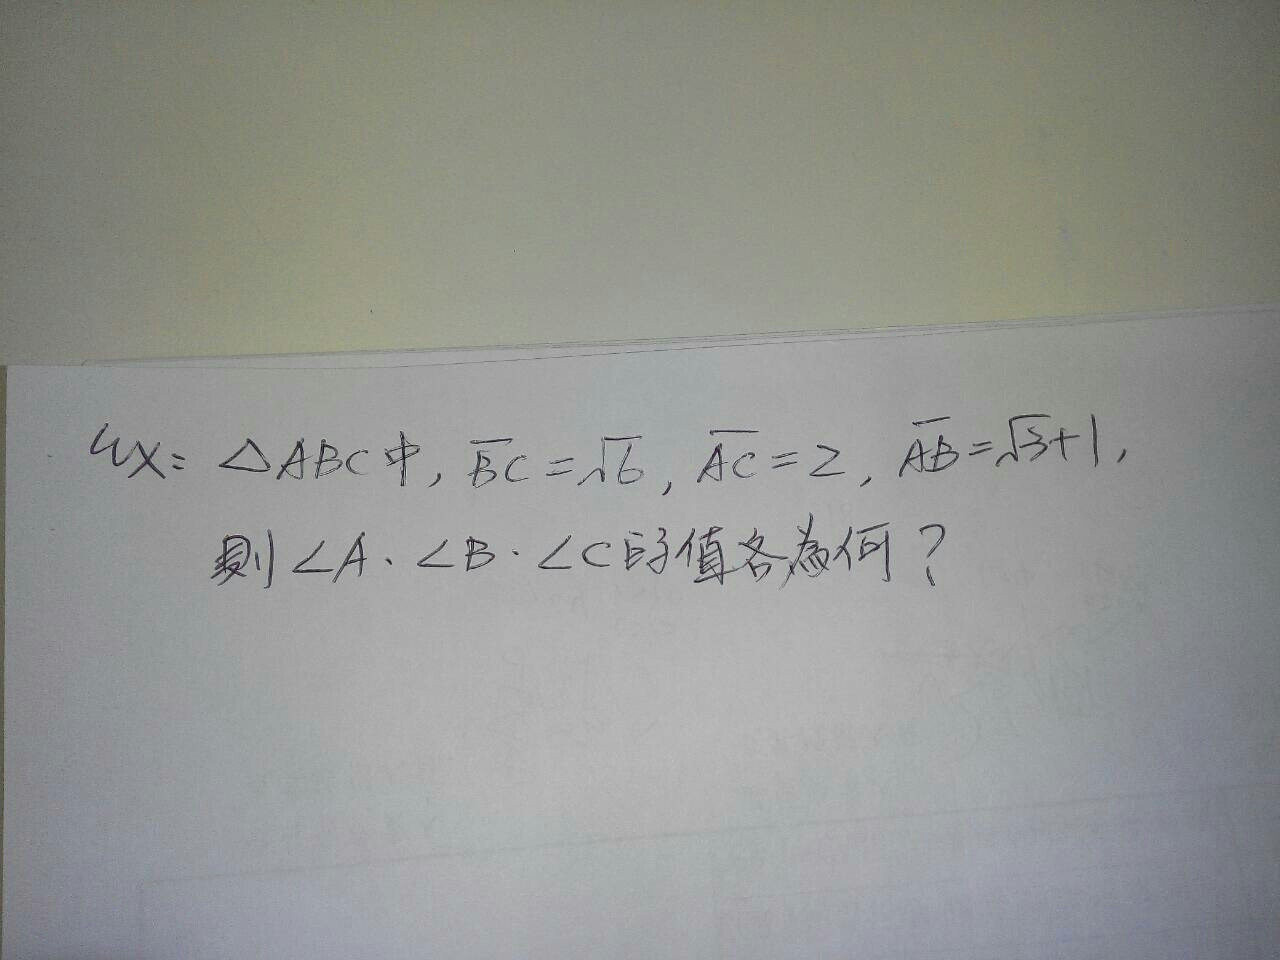 ex: △ABC中, B̅C̅=√6, A̅C̅=2, A̅B̅=√3+1,
則∠A、∠B、∠C的值各為何?